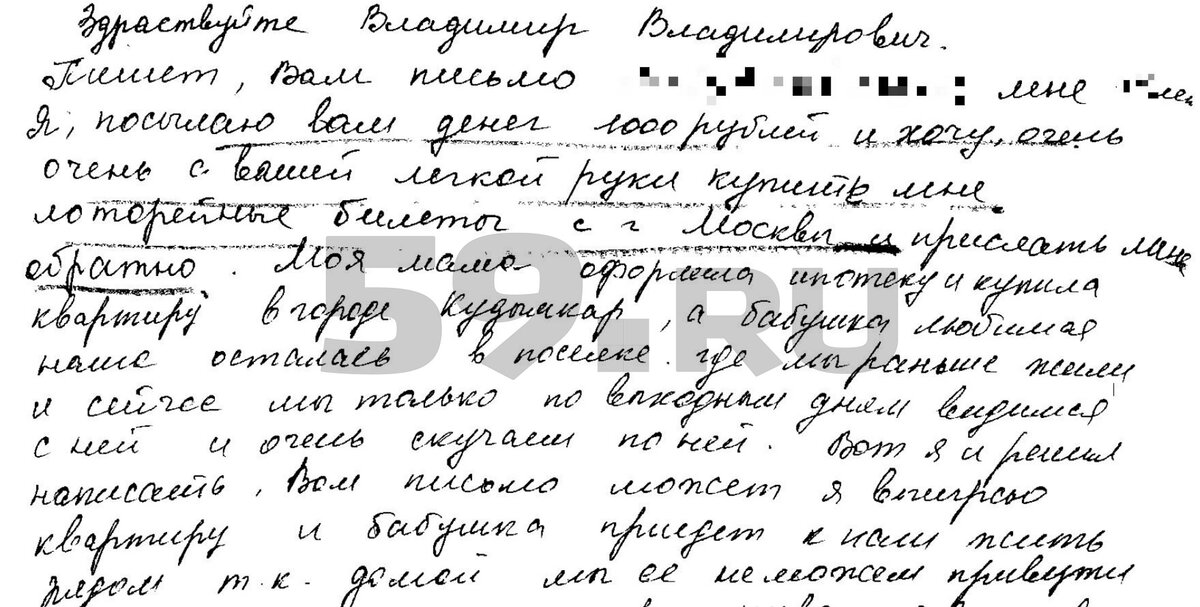 Здраствуйте Владимир Владимирович.
Пишет, Вам письмо мне
Я, посылаю вам денег 1000 рублей и хочу, очень
очень с вашей легкой руки купить мне
лоторейные билеты с г Москвы и прислать мне
обратно. Моя мама оформила ипотеку и купила
квартиру в городе Кудымкар, а бабушка любимая
наша осталась в поселке где мы раньше жили
и сейчас мы только по выходным дням видимся
с ней и очень скучаем по ней. Вот я и решил
написать, Вам письмо может я выиграю
квартиру и бабушка приедет к нам жить
рядом т.к. домой мы ее неможем привезти
59.RU